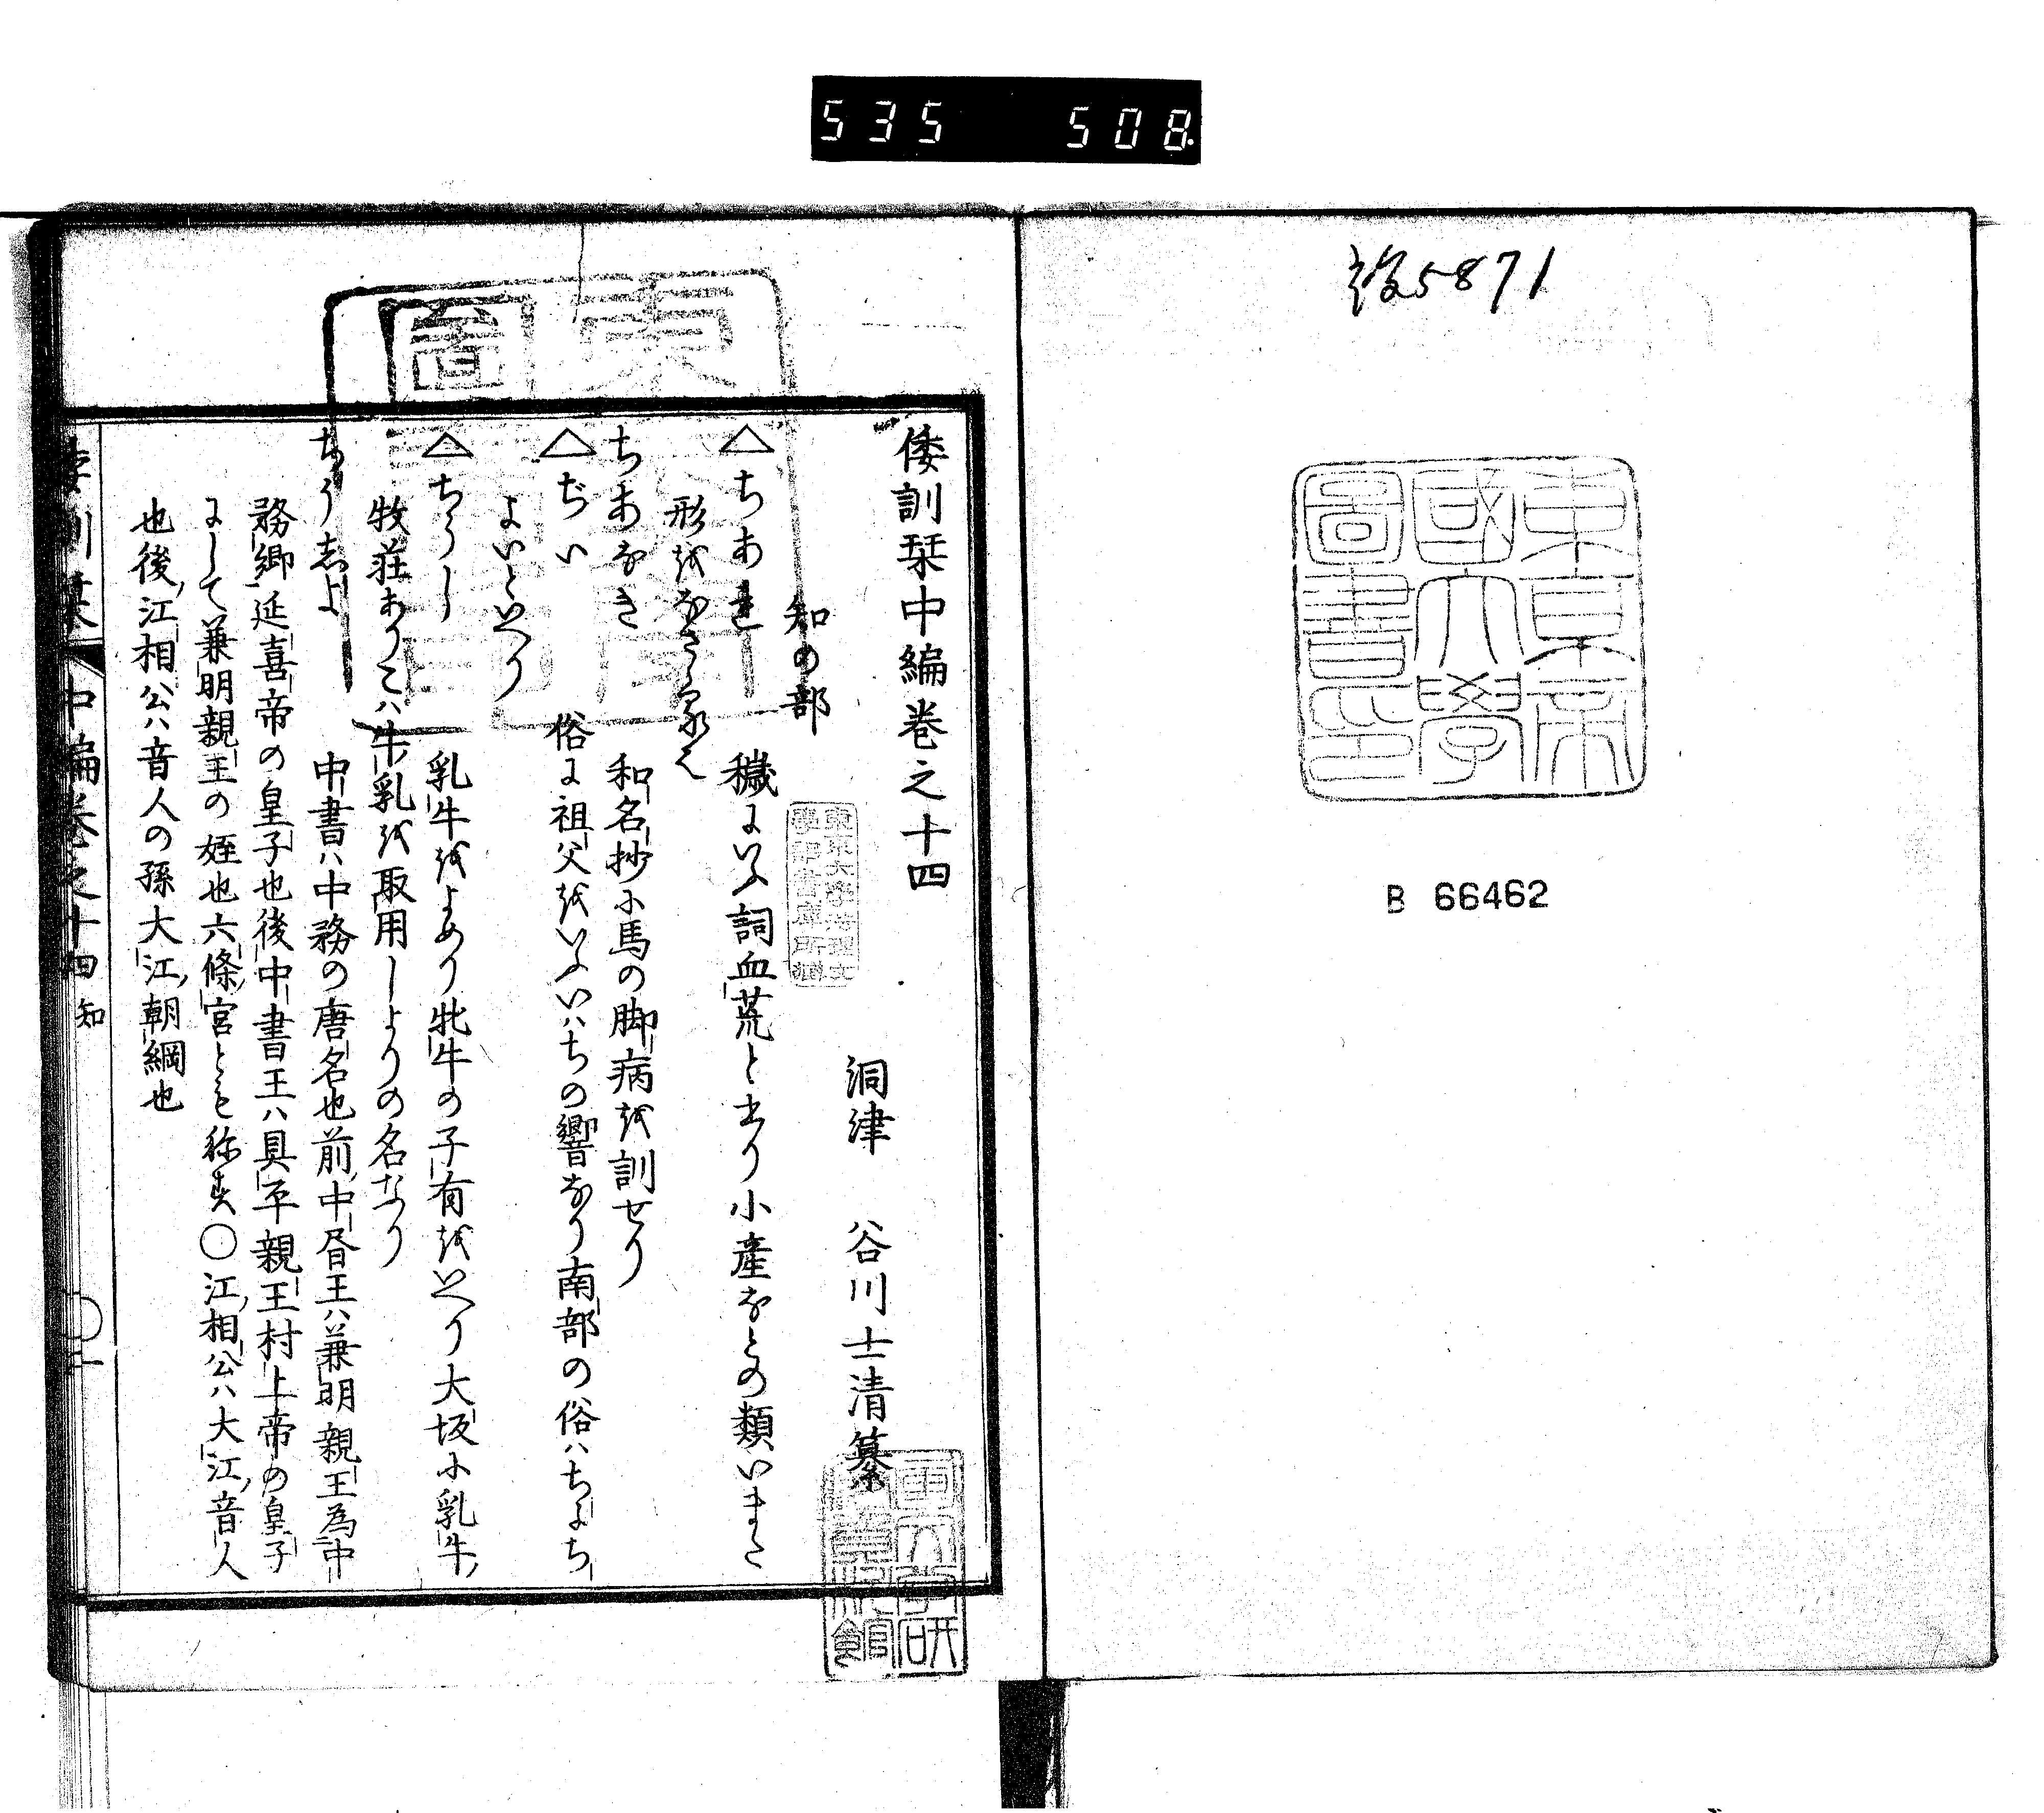 535 508
後5871
東京帝
國大學
圖書印
B 66462
倭訓栞中編巻之十四
洞津 谷川士清纂
知の部
△ちあれ 穢にいふ詞血荒と書り小產なとの類いまた
形をなさゝる也
ちあなき 和名抄に馬の脚病を訓せり
△ぢい 俗に祖父をいふいはちの響なり南部の俗はちよち
よいといへり
△ちうし 乳牛をよめり牝牛の子有をいへり大坂に乳牛
牧荘ありこは牛乳を取用しよりの名なり
ちうしよ 中書は中務の唐名也前中書王は兼明親王為中
務卿延喜帝の皇子也後中書王は具平親王村上帝の皇子
にして兼明親王の姪也六條宮とも称す○江相公は大江音人
也後江相公は音人の孫大江朝綱也
倭訓栞 中編巻之十四 知 〇一